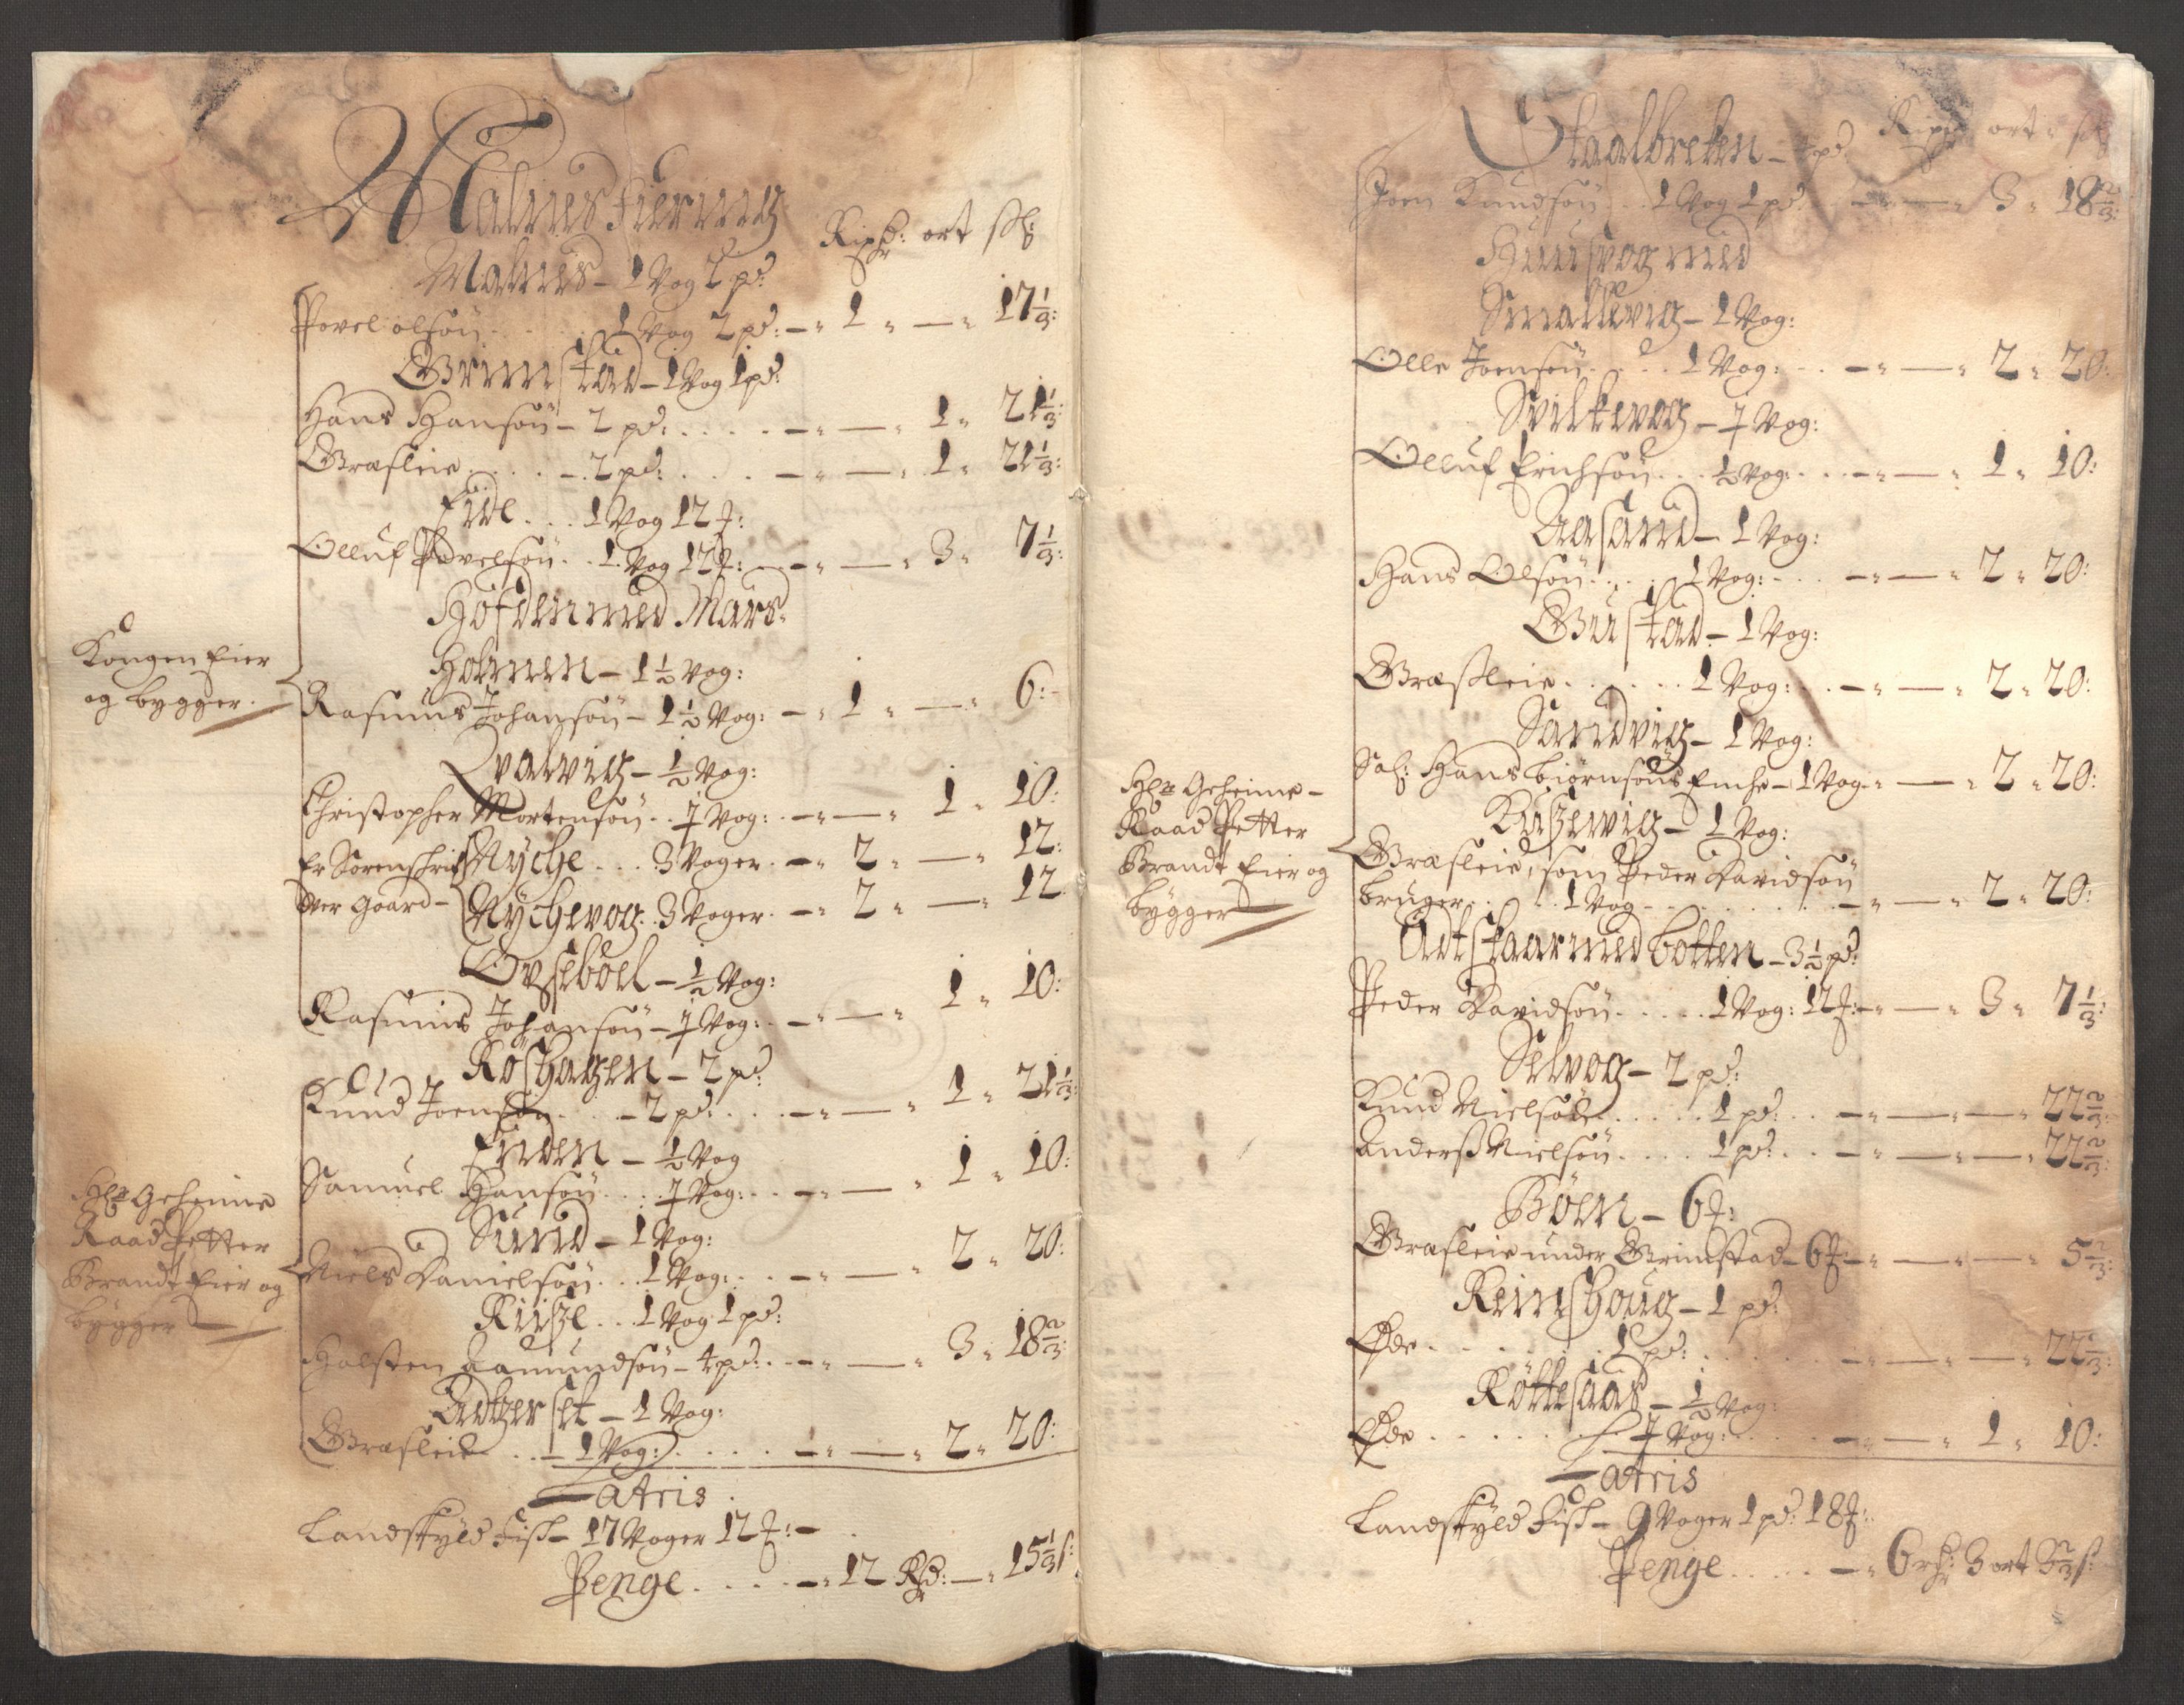 Malnes Fierring
Rixdr: ort sk:
Malnes – 1 Vog 2 pd:
Povel olsøn . . . 1 Vog 2 pd: – „ 1 „ — „ 17 1/3:
Grimstad – 1 Vog 1 pd:
Hans Hansøn – 2 pd: . . . . – „ — „ 1 „ 21 1/3:
Græsleie . . . . – 2 pd: . . . – „ — „ 1 „ 21 1/3:
Eide . . . 1 Vog 12 ℔:
Olluf Povelsøn . . 1 Vog 12 ℔: – „ — „ 3 „ 7 1/3:
Høfden med Mars-
Kongen Eier
og bygger.
Holmen – 1 1/2 Vog:
Rasmus Johansøn – 1 1/2 Vog: – „ 1 „ — „ 6:
Qvalvig – 1/2 Vog:
Christopher Mortensøn . . 1/2 Vog: – „ — „ 1 „ 10:
Er Sorenskrif- Nyche . . . 3 Voger – „ 2 „ — „ 12:
ver Gaard – Nychevog . 3 Voger – „ 2 „ — „ 12
Ovsebøel – 1/2 Vog:
Rasmus Johansøn – 1/2 Vog: – „ — „ 1 „ 10:
Røshagen – 2 pd:
Knud Joensøn . . . – 2 pd: . . – „ — „ 1 „ 21 1/3:
Enden – 1/2 Vog
Samuel Hansøn . . . 1/2 Vog: . . – „ — „ 1 „ 10:
Hr Geheime
Raad Petter
Brandt Eier og
bygger
Sund – 1 Vog:
Niels Danielsøn . . 1 Vog: . . – „ — „ 2 „ 20:
Riise . . . 1 Vog 1 pd:
Holsten Aamundsøn – 4 pd: . . – „ — „ 3 „ 18 2/3:
Adtzerset – 1 Vog:
Græsleie . . – 1 Vog: . . . . – „ — „ 2 „ 20:
Latris
Landskyld Fisk – 17 Voger 12 ℔: –
Penge . . . . – „ 12 Rd: — „ 15 1/3 s:
Staalbreken – 4 pd: Rixdr ort „ sk
Joen Knudsøn . . 1 Vog 1 pd: – „ — „ 3 „ 18 2/3:
Huusvog med
Smallevig – 1 Vog:
Olle Joensøn . . . . 1 Vog: . . – „ — „ 2 „ 20:
Svilkevog – 1/2 Vog:
Olluf Erichsøn . . . 1/2 Vog: . . . – „ — „ 1 „ 10:
Aasand – 1 Vog:
Hans Olsøn . . . . 1 Vog: . . . – „ — „ 2 „ 20:
Gustad – 1 Vog:
Græsleie . . . . . . 1 Vog: . . – „ — „ 2 „ 20:
Sandvig – 1 Vog:
Sal: Hans Biørnsøns Enche – 1 Vog – „ — „ 2 „ 20:
Hr Geheime-
Raad Petter
Brandt Eier og
bygger
– 1 Vog:
Græsleie, som Peder Davidsøn
bruger . . . 1 Vog . . . . – „ — „ 2 „ 20:
Adtskaar med botten – 3 1/2 pd:
Peder Davidsøn . . . . . 1 Vog: 12 ℔: – „ — „ 3 „ 7 1/3:
Selvog – 2 pd:
Knud Nielsøn . . . . . 1 pd: . . – „ — „ — „ 22 2/3:
Anderss Nielsøn . . . . 1 pd: . . – „ — „ — „ 22 2/3:
Bøen – 6 ℔:
Græsleie under Grimstad – 6 ℔ – „ — „ — „ 5 2/3:
Reinshaug – 1 pd:
Øde . . . . . . . 1 pd: . . . . – „ — „ — „ 22 2/3:
Røttesaas – 1/2 Vog:
Øde . . . . . . . 1/2 Vog: . . . . – „ — „ 1 „ 10:
Latris
Landskyld Fisk – 9 Voger 1 pd: 18 ℔:
Penge . . . . . – „ 6 rd: 3 ort 3 2/3 s